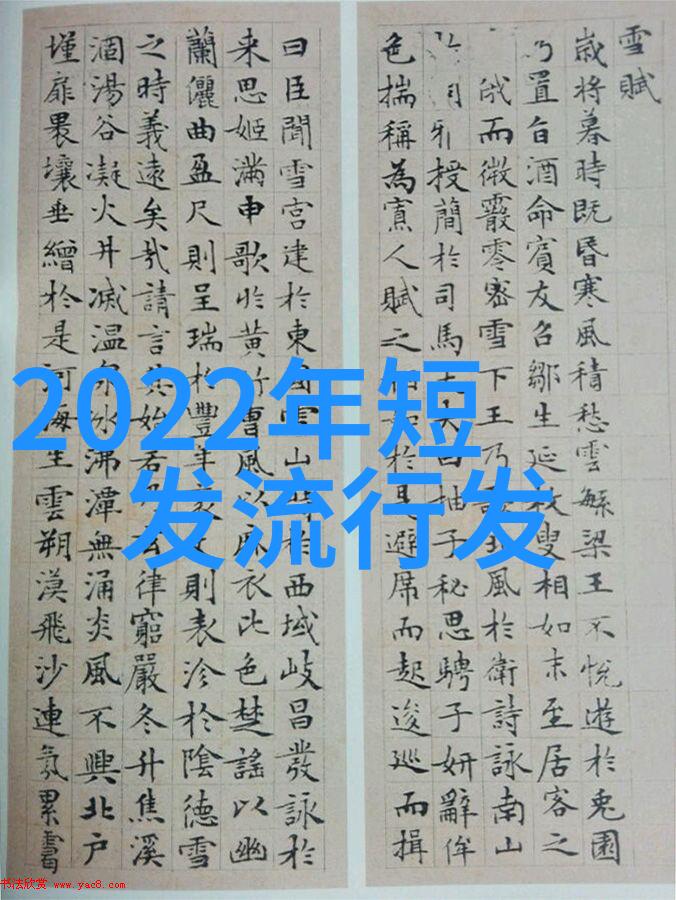 雪賦
歲將暮時既昏寒風積愁雲繁梁王不悅遊於兔園
乃置旨酒命賓友召鄒生延枚叟相如末至居客之
俄而微霰零密雪下王乃北風於衛詩詠南山
雅授簡於司馬大夫曰抽子秘思騁子妍辭侔
色揣稱為寡人賦之相如於是避席而起逡巡而揖
曰臣聞雪宮建於東國雪山峙於西域岐昌發詠於
来思姬滿申歌於黃竹曹風以麻衣比色楚謠以幽
蘭儷曲盈尺則呈瑞於豐年袤丈則表沴於陰德雪
之時義遠矣哉請言其始若乃玄律窮嚴冬升焦溪
涸湯谷凝火井滅温泉冰沸潭無涌炎風不興北户
墐扉裸壤垂繒於是河海生雲朔漠飛沙連氛累靄
2022年短
发流行发
书法欣赏 www.yac8.com